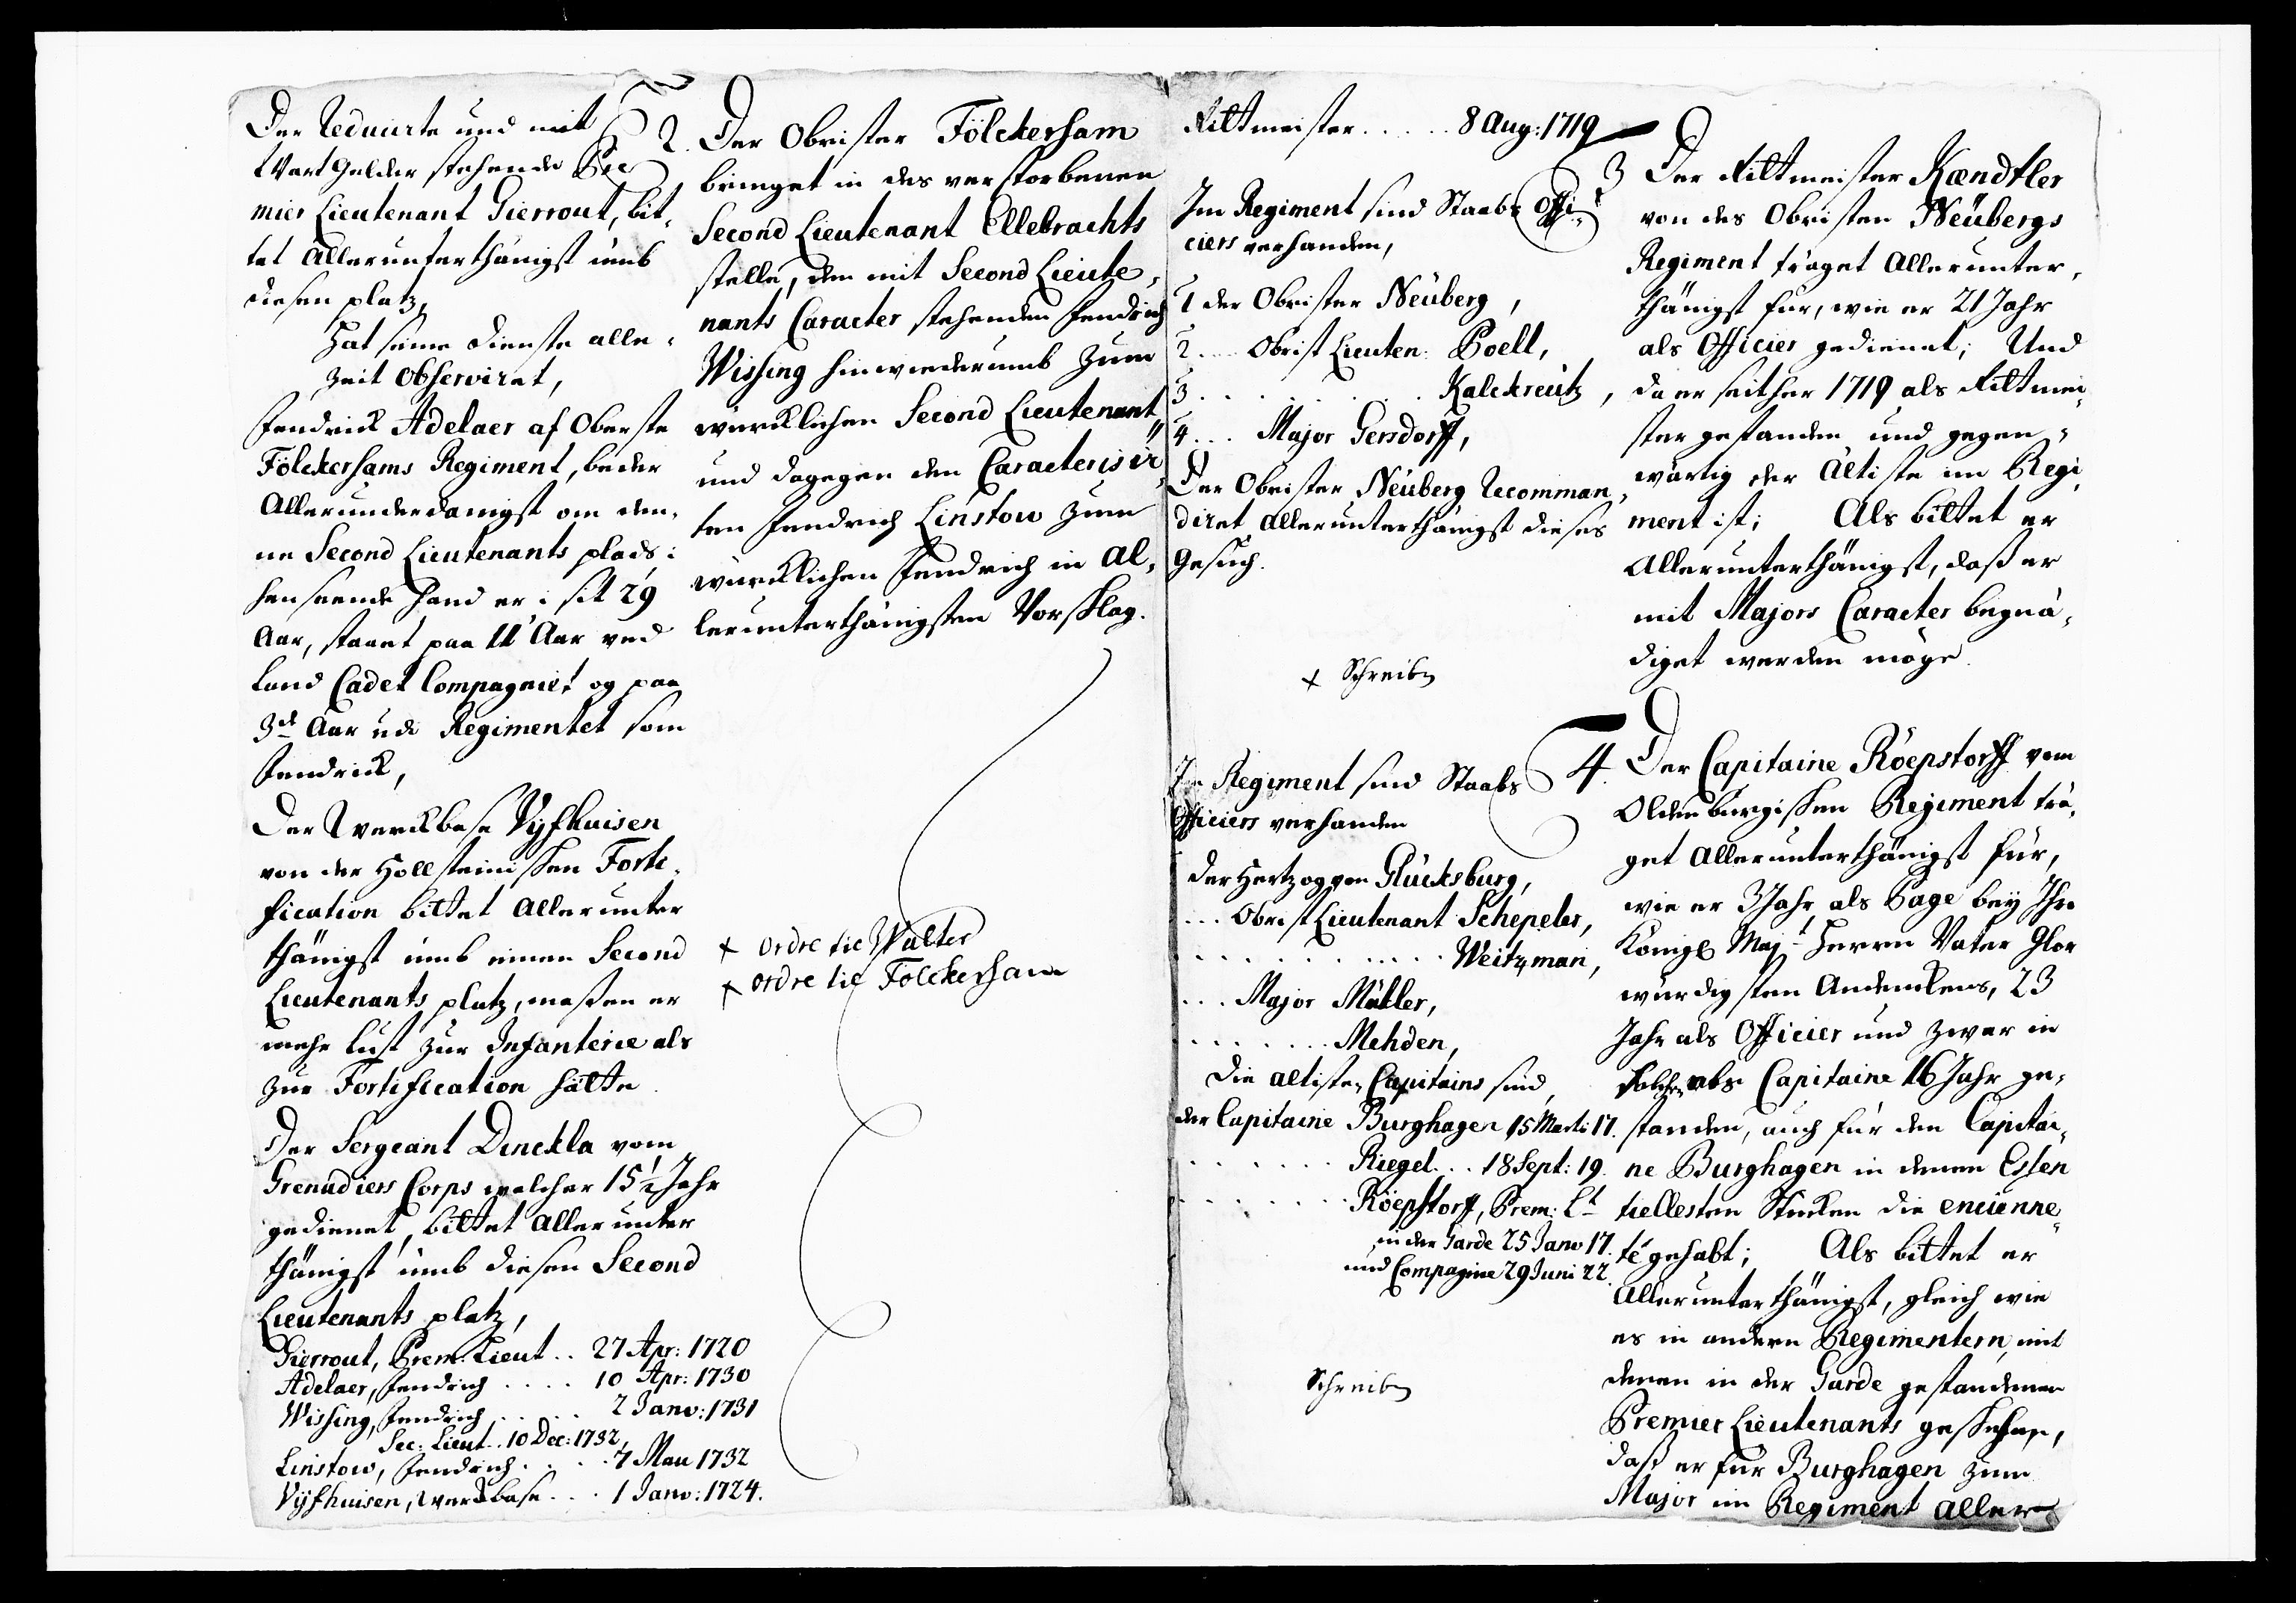 Der Reducirte und mit
Wart Gelder stehende Pre
mier Lieutenant Gierrout, bit,
tet Allerunterthänigst umb
diesen platz,
Hat seine Dienste alle,
Zeit Observiret,
Fendrick Adelaer af Oberste
Fölckersams Regiment, beder
Allerunderdanigst om den,
ne Second Lieutenants plads,
henseende hand er i sit 29
Aar, staaet paa 11 Aar ved
Land Cadet Compagniet og paa
3de Aar ved Regimentet som
Fendrick,
Der Werckbase Vÿfhuisen
von der Hollsteinischen Forti,
fication bittet Allerunter
thänigst umb einen Second
Lieutenants platz, maßen er
mehr Lust zur Infanterie als
zur Fortification hätte.
Der Sergeant Dinckla vom
Grenadiers Corps welcher 15½ Jahr
gedienet, bittet Allerunter
thänigst umb diesen Second
Lieutenants platz,
Gierrout, Prem: Lieut .. 27 Apr: 1720
Adelaer, Fendrich .... 10 Apr: 1730
Wissing, Fendrich ..... 2 Janv: 1731
Sec: Lieut .. 10 Dec: 1732,
Linstow, Fendrich .... 7 Mau 1732
Vÿfhuisen, Werckbase ... 1 Janv: 1724.
2. Der Obrister Fölckersam
bringet in des verstorbenen
Second Lieutenant Ellebrachts
stelle, den mit Second Lieute,
nants Caracter stehenden Fendrich
Wissing hinwiederumb zum
würcklichen Second Lieutenant,
und dagegen den Caracterisir,
ten Fendrich Linstow zum
würcklichen Fendrich in al,
lerunterthänigsten Vorschlag.
+ ordre til Walter
+ ordre til Fölckersam
Rittmeister ..... 8 Aug: 1719
Im Regiment sind Staabs Offi,
ciers verhanden,
1 der Obrister Neüberg,
2 .... Obrist Lieuten: Poell,
3 .......... Kalckreütz,
4 ... Major Gersdorff,
Der Obrister Neüberg Recomman,
diret allerunterthänigst dieses
Gesuch.
+ Schreiben
Im Regiment sind Staabs
Officiers verhanden
der Hertzog von Glücksburg,
... Obrist Lieutenant Schepeler,
............ Weitzman,
... Major Müller,
........ Mehden,
Die altiste Capitains sind,
der Capitaine Burghagen 15 Marti 17.
...... Riegel ... 18 Sept: 19.
....... Röepstorff, Prem: Lt
in der Garde 25 Janv 17.
und Compagnie 29 Juni 22.
Schreiben
3 Der Rittmeister Kændtler
von des Obristen Neübergs
Regiment träget Allerunter,
thänigst für, wie er 21 Jahr
als Officier gedienet; Und
da er seither 1719 als Rittmei,
ster gestanden und gegen,
wärtig der Ältiste im Regi,
ment ist; Als bittet er
Allerunterthänigst, daß er
mit Majors Caracter begnä,
diget werden möge.
4. Der Capitaine Röepstorff vom
Oldenburgischen Regiment trä,
get Allerunterthänigst für,
wie er 3 Jahr als Page bey Ihro
Königl Majt Herrn Vater Glor
würdigsten Andenckens, 23
Jahr als Officier und zwar in
solchen als Capitaine 16 Jahr ge,
standen, auch für den Capitai,
ne Burghagen in denen Essen
tiellesten Stücken die encienne,
té gehabt; Als bittet er
Allerunterthänigst, gleich wie
es in andern Regimentern mit
denen in der Garde gestandenen
Premier Lieutenants geschehen,
daß er für Burghagen zum
Major im Regiment aller